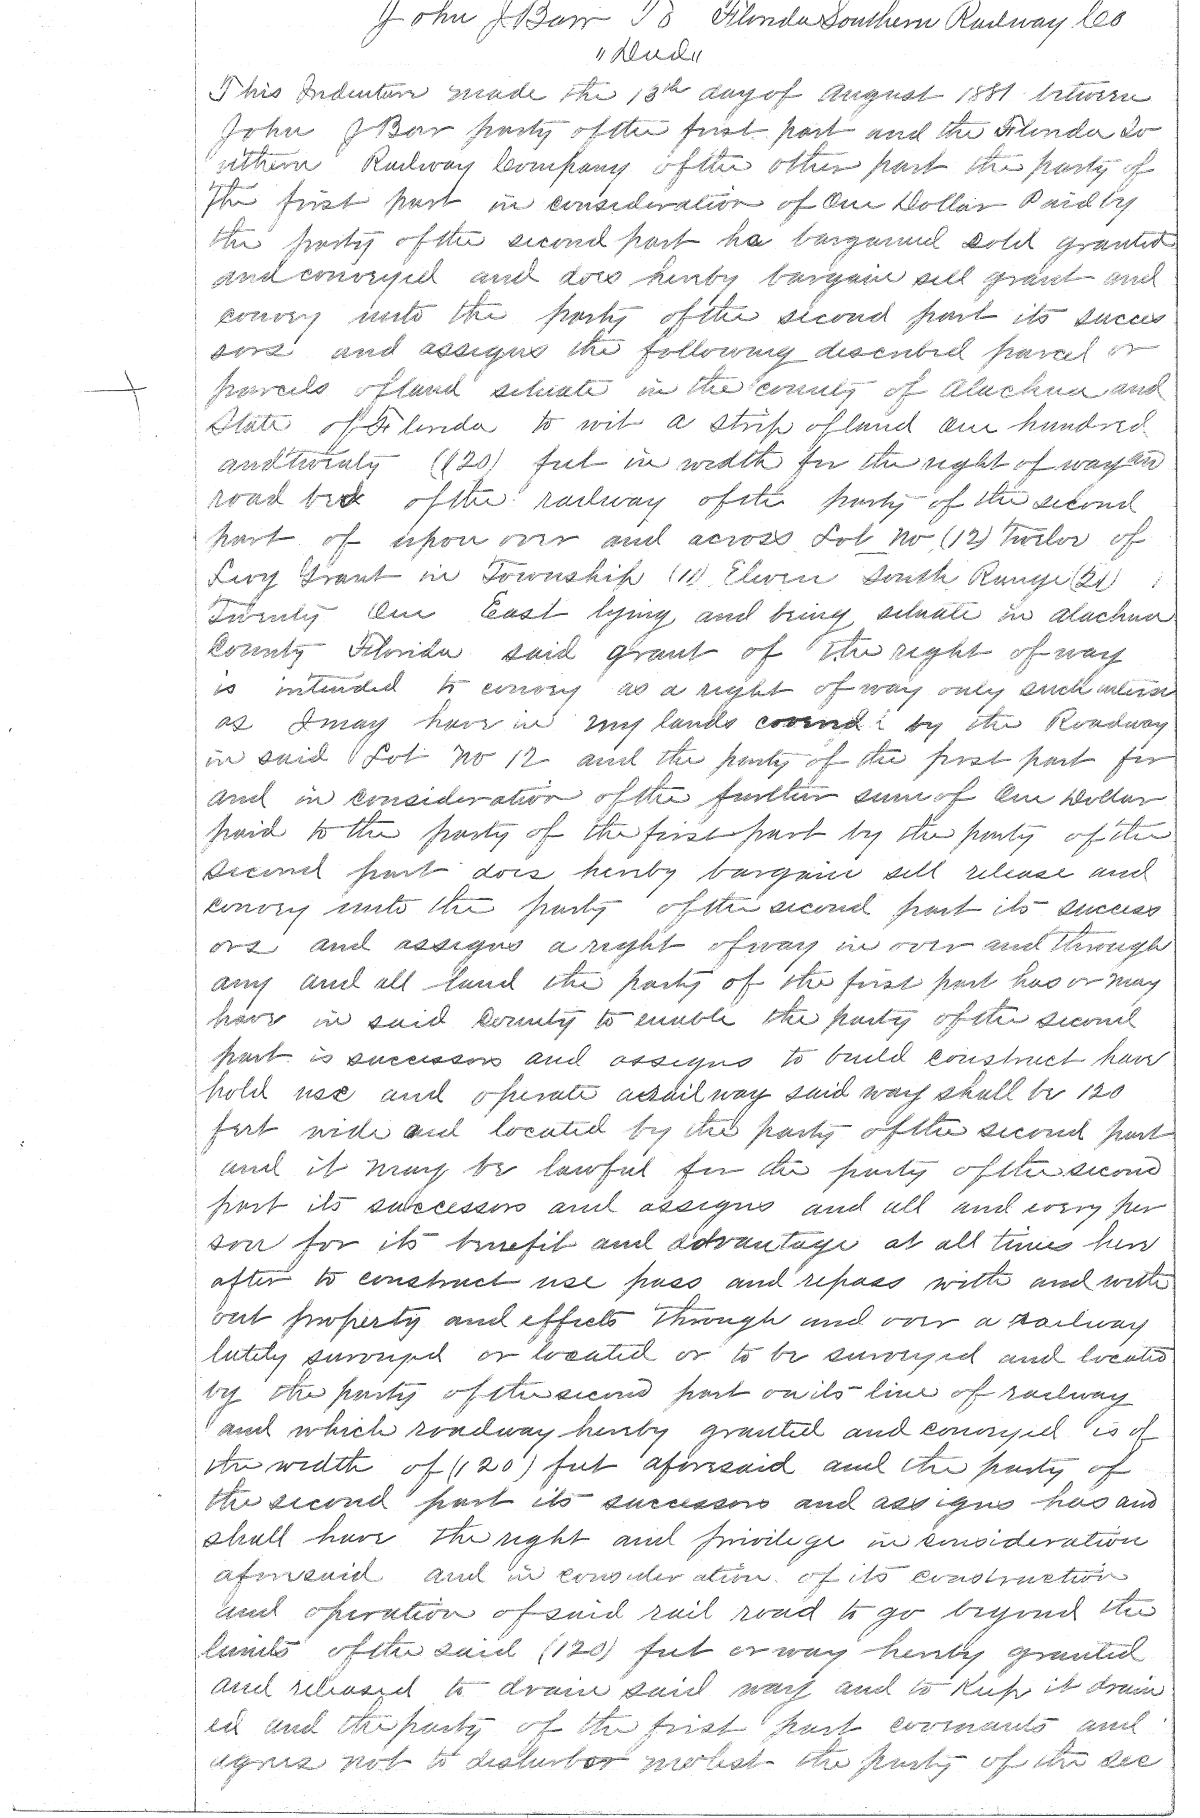 John J Barr To Florida Southern Railway Co
"Deed"
This Indenture made the 13th day of August 1881 between
John J Barr party of the first part and the Florida So
uthern Railway Company of the other part the party of
The first part in consideration of One Dollar Paid by
the party of the second part ha bargained sold granted
and conveyed and does hereby bargain sell grant and
convey unto the party of the second part its succes
sors and assigns the following described parcel or
parcels of land situate in the county of Alachua and
State of Florida to wit a strip of land one hundred
and twenty (120) feet in width for the right of way an
road bed of the railway of the party of the second
part of upon over and across Lot No (12) Twelve of
Levy Grant in Township (11) Eleven South Range (21)
Twenty One East lying and being situate in Alachua
County Florida said grant of the right of way
is intended to convey as a right of way only such interest
as I may have in my lands covered by the Roadway
in said Lot No 12 and the party of the first part for
and in consideration of the further sum of One Dollar
paid to the party of the first part by the party of the
second part does hereby bargain sell release and
convey unto the party of the second part its success
ors and assigns a right of way in over and through
any and all land the party of the first part has or may
have in said County to enable the party of the second
part is successors and assigns to build construct have
hold use and operate a railway said way shall be 120
feet wide and located by the party of the second part
and it may be lawful for the party of the second
part its successors and assigns and all and every per
son for its benefit and advantage at all times here
after to construct use pass and repass with and with
out property and effects through and over a railway
lately surveyed or located or to be surveyed and located
by the party of the second part on its line of railway
and which roadway hereby granted and conveyed is of
the width of (120) feet aforesaid and the party of
the second part its successors and assigns has and
shall have the right and privilege in consideration
aforesaid and in consideration of its construction
and operation of said rail road to go beyond the
limits of the said (120) feet or way hereby granted
and released to drain said way and to Keep it drain
ed and the party of the first part covenants and
agrees not to disturb or molest the party of the sec